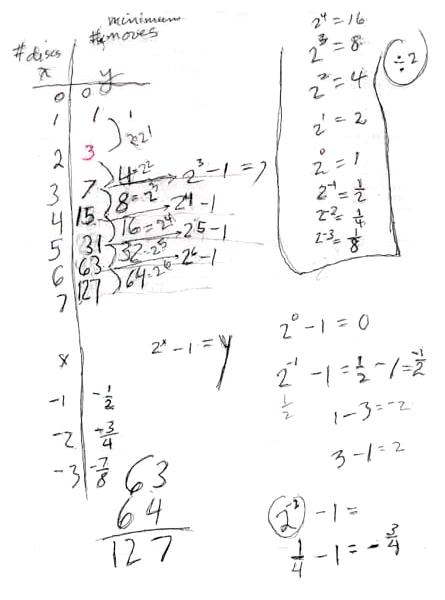 #discs
x
minimum
# moves
y
0 0
1 1
2 3
3 7
4 15
5 31
6 63
7 127
1
2=2^1
4=2^2
8=2^3
16=2^4
32=2^5
64=2^6
2^3-1=7
2^4-1
2^5-1
2^6-1
2^x-1=y
x
-1 -1/2
-2 -3/4
-3 -7/8
63
64
127
2^4=16
2^3=8
2^2=4
2^1=2
2^0=1
2^-1=1/2
2^-2=1/4
2^-3=1/8
÷2
2^0-1=0
2^-1-1=1/2-1=-1/2
1/2
1-3=-2
3-1=2
2^-2-1=
1/4-1=-3/4